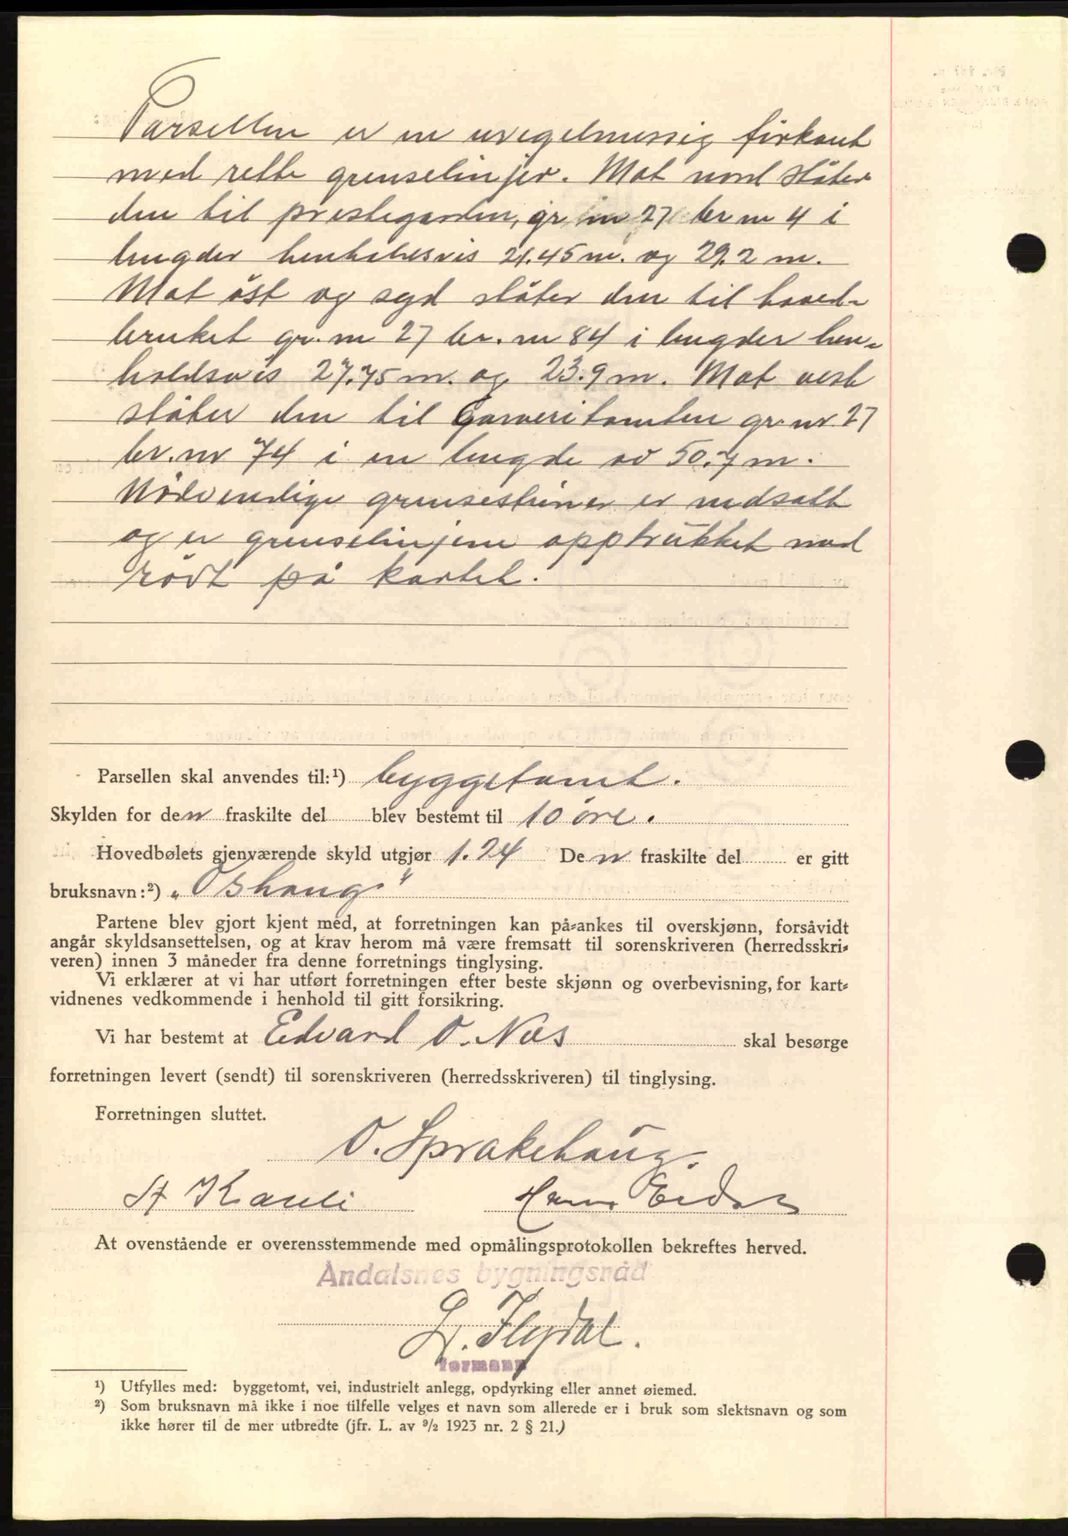 Parsellen er en uregelmessig firkant
med rette grenselinjer. Mot nord støter
den til prestegarden, gr. nr 27 br nr 4 i
lengder henholdsvis 21.45 m. og 29.2 m.
Mot øst og syd støter den til hoved-
bruket gr. nr 27 br. nr 84 i lengder hen-
holdsvis 27.75 m. og 23.9 m. Mot vest
støter den til Garveritomten gr. nr 27
br. nr 74 i en lengde av 50.7 m.
Nödvendige grensestener er nedsatt
og er grenselinjene opptrukket med
rødt på kartet.
Parsellen skal anvendes til:¹) byggetomt.
Skylden for den fraskilte del blev bestemt til 10 øre.
Hovedbølets gjenværende skyld utgjør 1.24 Den fraskilte del er gitt
bruksnavn:²) „Oshaug"
Partene blev gjort kjent med, at forretningen kan på-ankes til overskjønn, forsåvidt
angår skyldsansettelsen, og at krav herom må være fremsatt til sorenskriveren (herredsskri-
veren) innen 3 måneder fra denne forretnings tinglysing.
Vi erklærer at vi har utført forretningen efter beste skjønn og overbevisning, for kart-
vidnenes vedkommende i henhold til gitt forsikring.
Vi har bestemt at Edvard O. Næs skal besørge
forretningen levert (sendt) til sorenskriveren (herredsskriveren) til tinglysing.
Forretningen sluttet.
O. Sprakehaug.
St Kavli Hans Eids
At ovenstående er overensstemmende med opmålingsprotokollen bekreftes herved.
Åndalsnes bygningsråd
L. Flydal.
formann
¹) Utfylles med: byggetomt, vei, industrielt anlegg, opdyrking eller annet øiemed.
²) Som bruksnavn må ikke i noe tilfelle velges et navn som allerede er i bruk som slektsnavn og som
ikke hører til de mer utbredte (jfr. L. av 9/2 1923 nr. 2 § 21.)